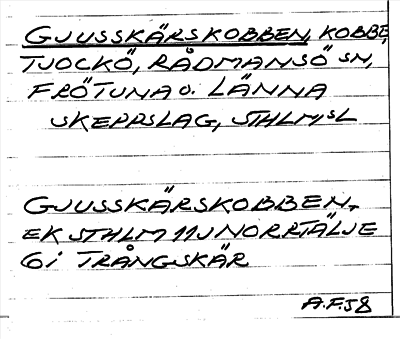 GJUSSKÄRSKOBBEN, KOBBE,
TJOCKÖ, RÅDMANSÖ SN,
FRÖTUNA O. LÄNNA
SKEPPSLAG, STHLM,SL
GJUSSKÄRSKOBBEN,
EK STHLM 11J NORRTÄLJE
6i TRÅNGSKÄR
A.F.58